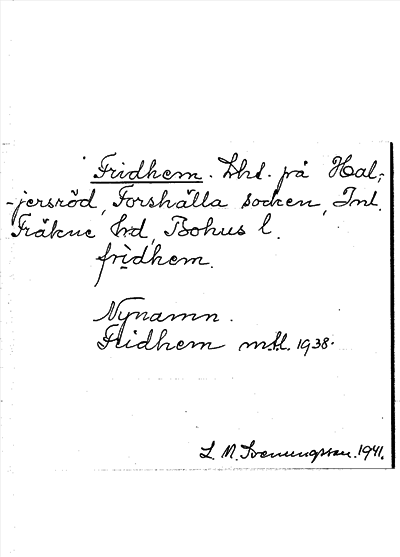 Fridhem. Lht. på Hal-
-jersröd, Forshälla socken, Inl.
Fräkne hd, Bohus l.
frịdhem.
Nynamn.
Fridhem mtl. 1938.
S. M. Svenungsson. 1941.